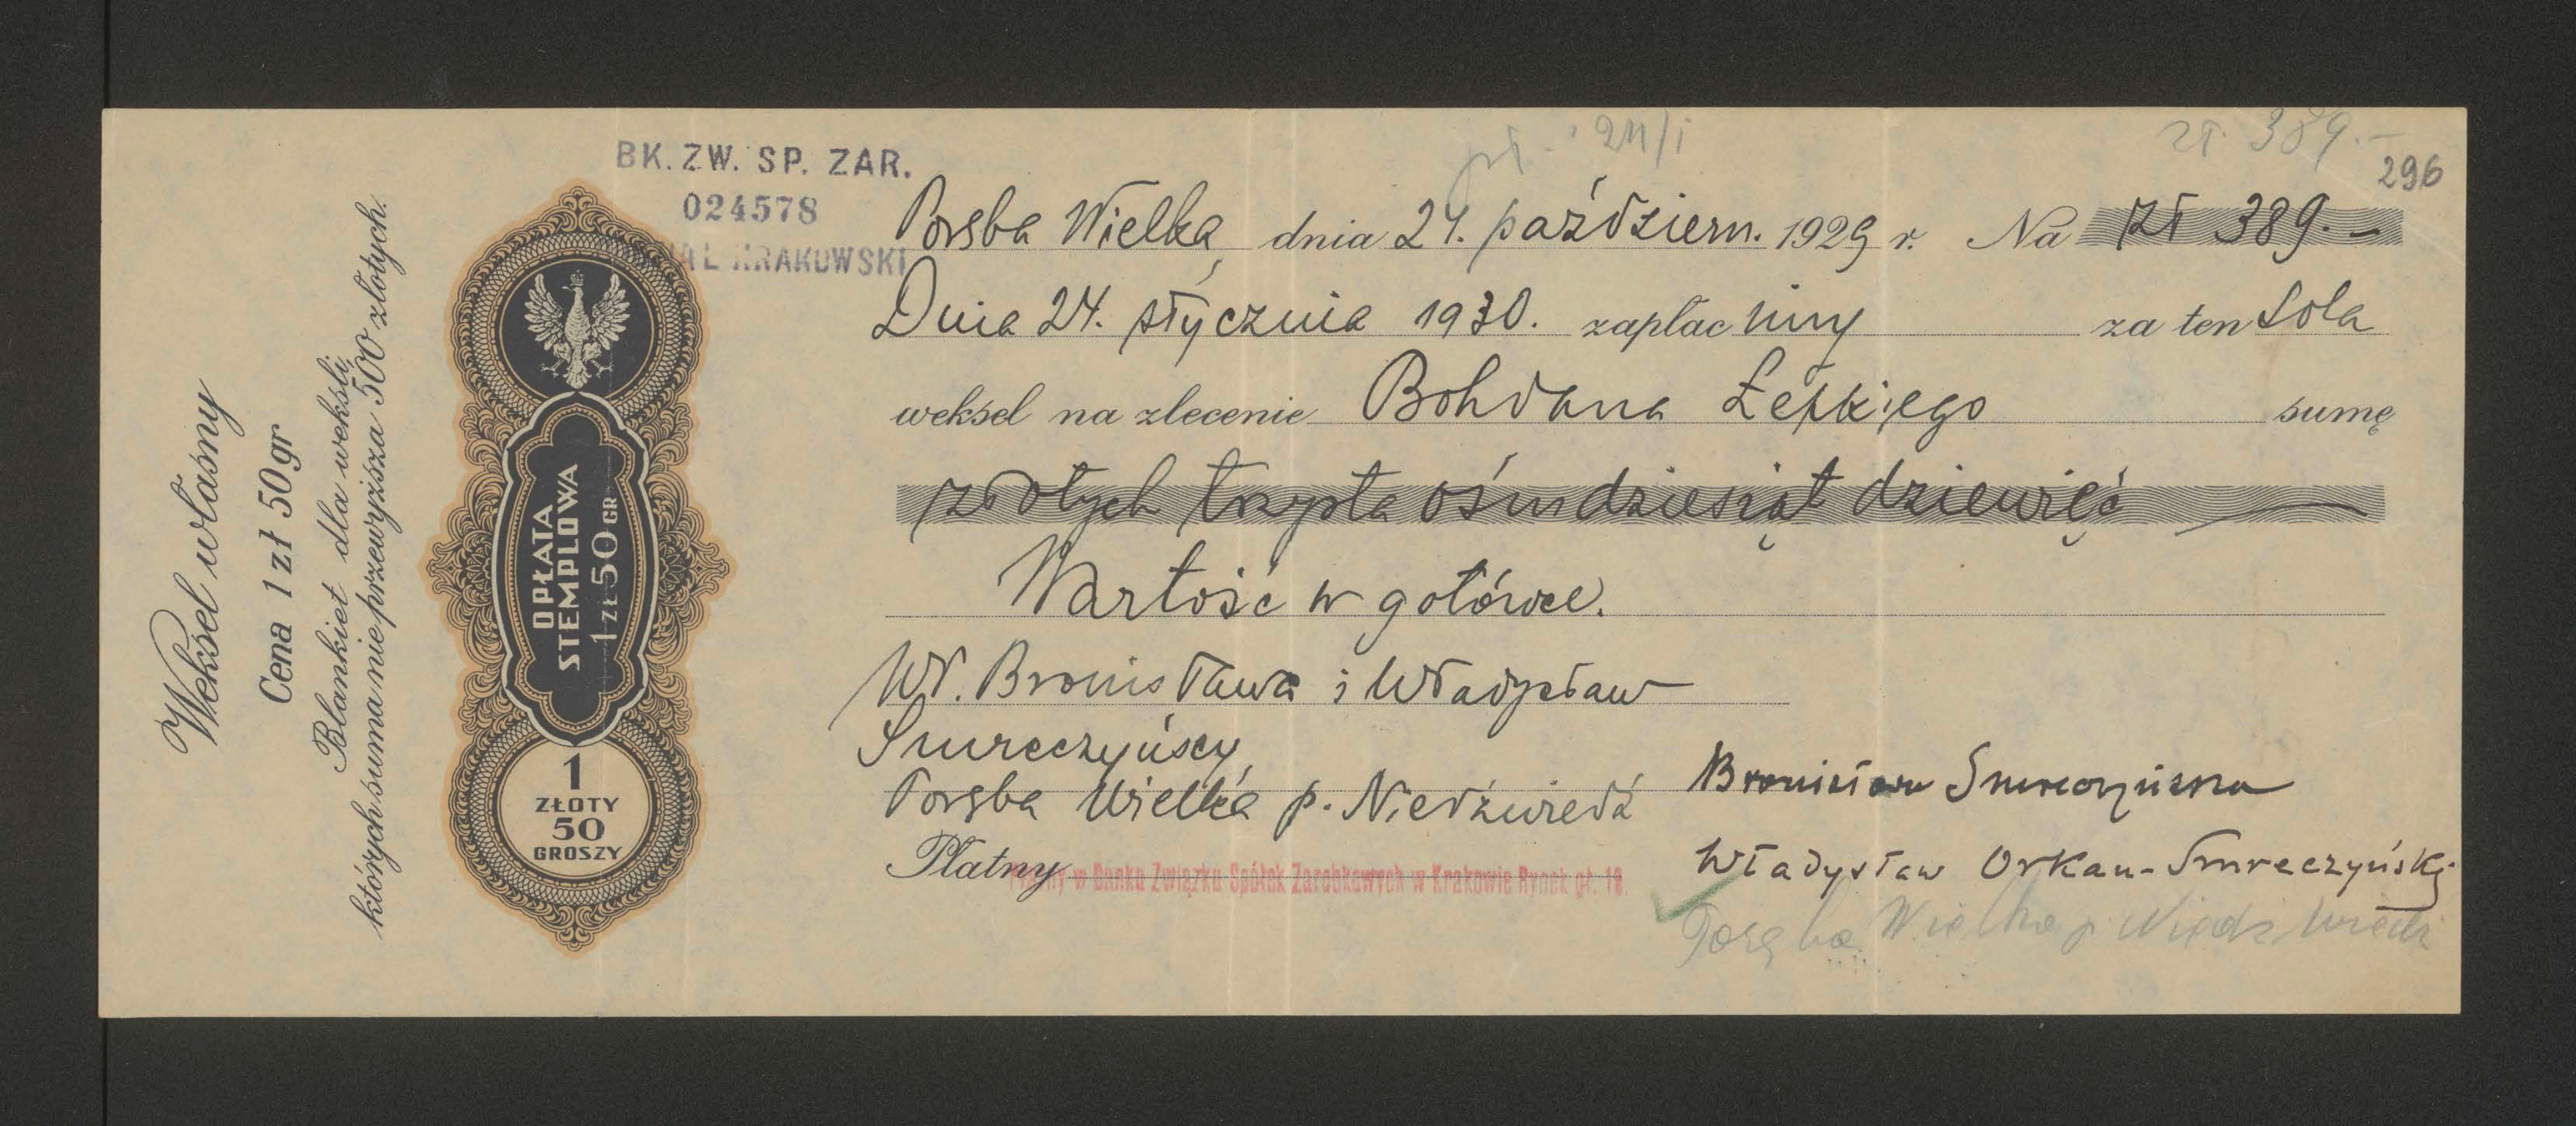 Weksel własny
Cena 1 zł 50 gr
Blankiet dla weksli,
których suma nie przewyższa 500 złotych.
OPŁATA
STEMPLOWA
1 ZŁ 50 GR
1
ZŁOTY
50
GROSZY
BK. ZW. SP. ZAR.
024578
KRAKOWSKI
pł. 24/I
zł. 389.-
296
Poręba Wielka, dnia 24. październ. 1929 r. Na Zł 389.-
Dnia 24. stycznia 1930. zapłacimy za ten Sola
weksel na zlecenie Bohdana Łepkiego sumę
złotych trzysta ośmdziesiąt dziewięć
Wartość w gotówce.
Wł. Bronisława i Władysław
Smreczyńscy,
Poręba Wielka p. Niedźwiedź
Płatny w Banku Związku Spółek Zarobkowych w Krakowie Rynek gł. 18.
Bronisława Smreczyńska
Władysław Orkan-Smreczyński
Poręba Wielka p. Niedźwiedź